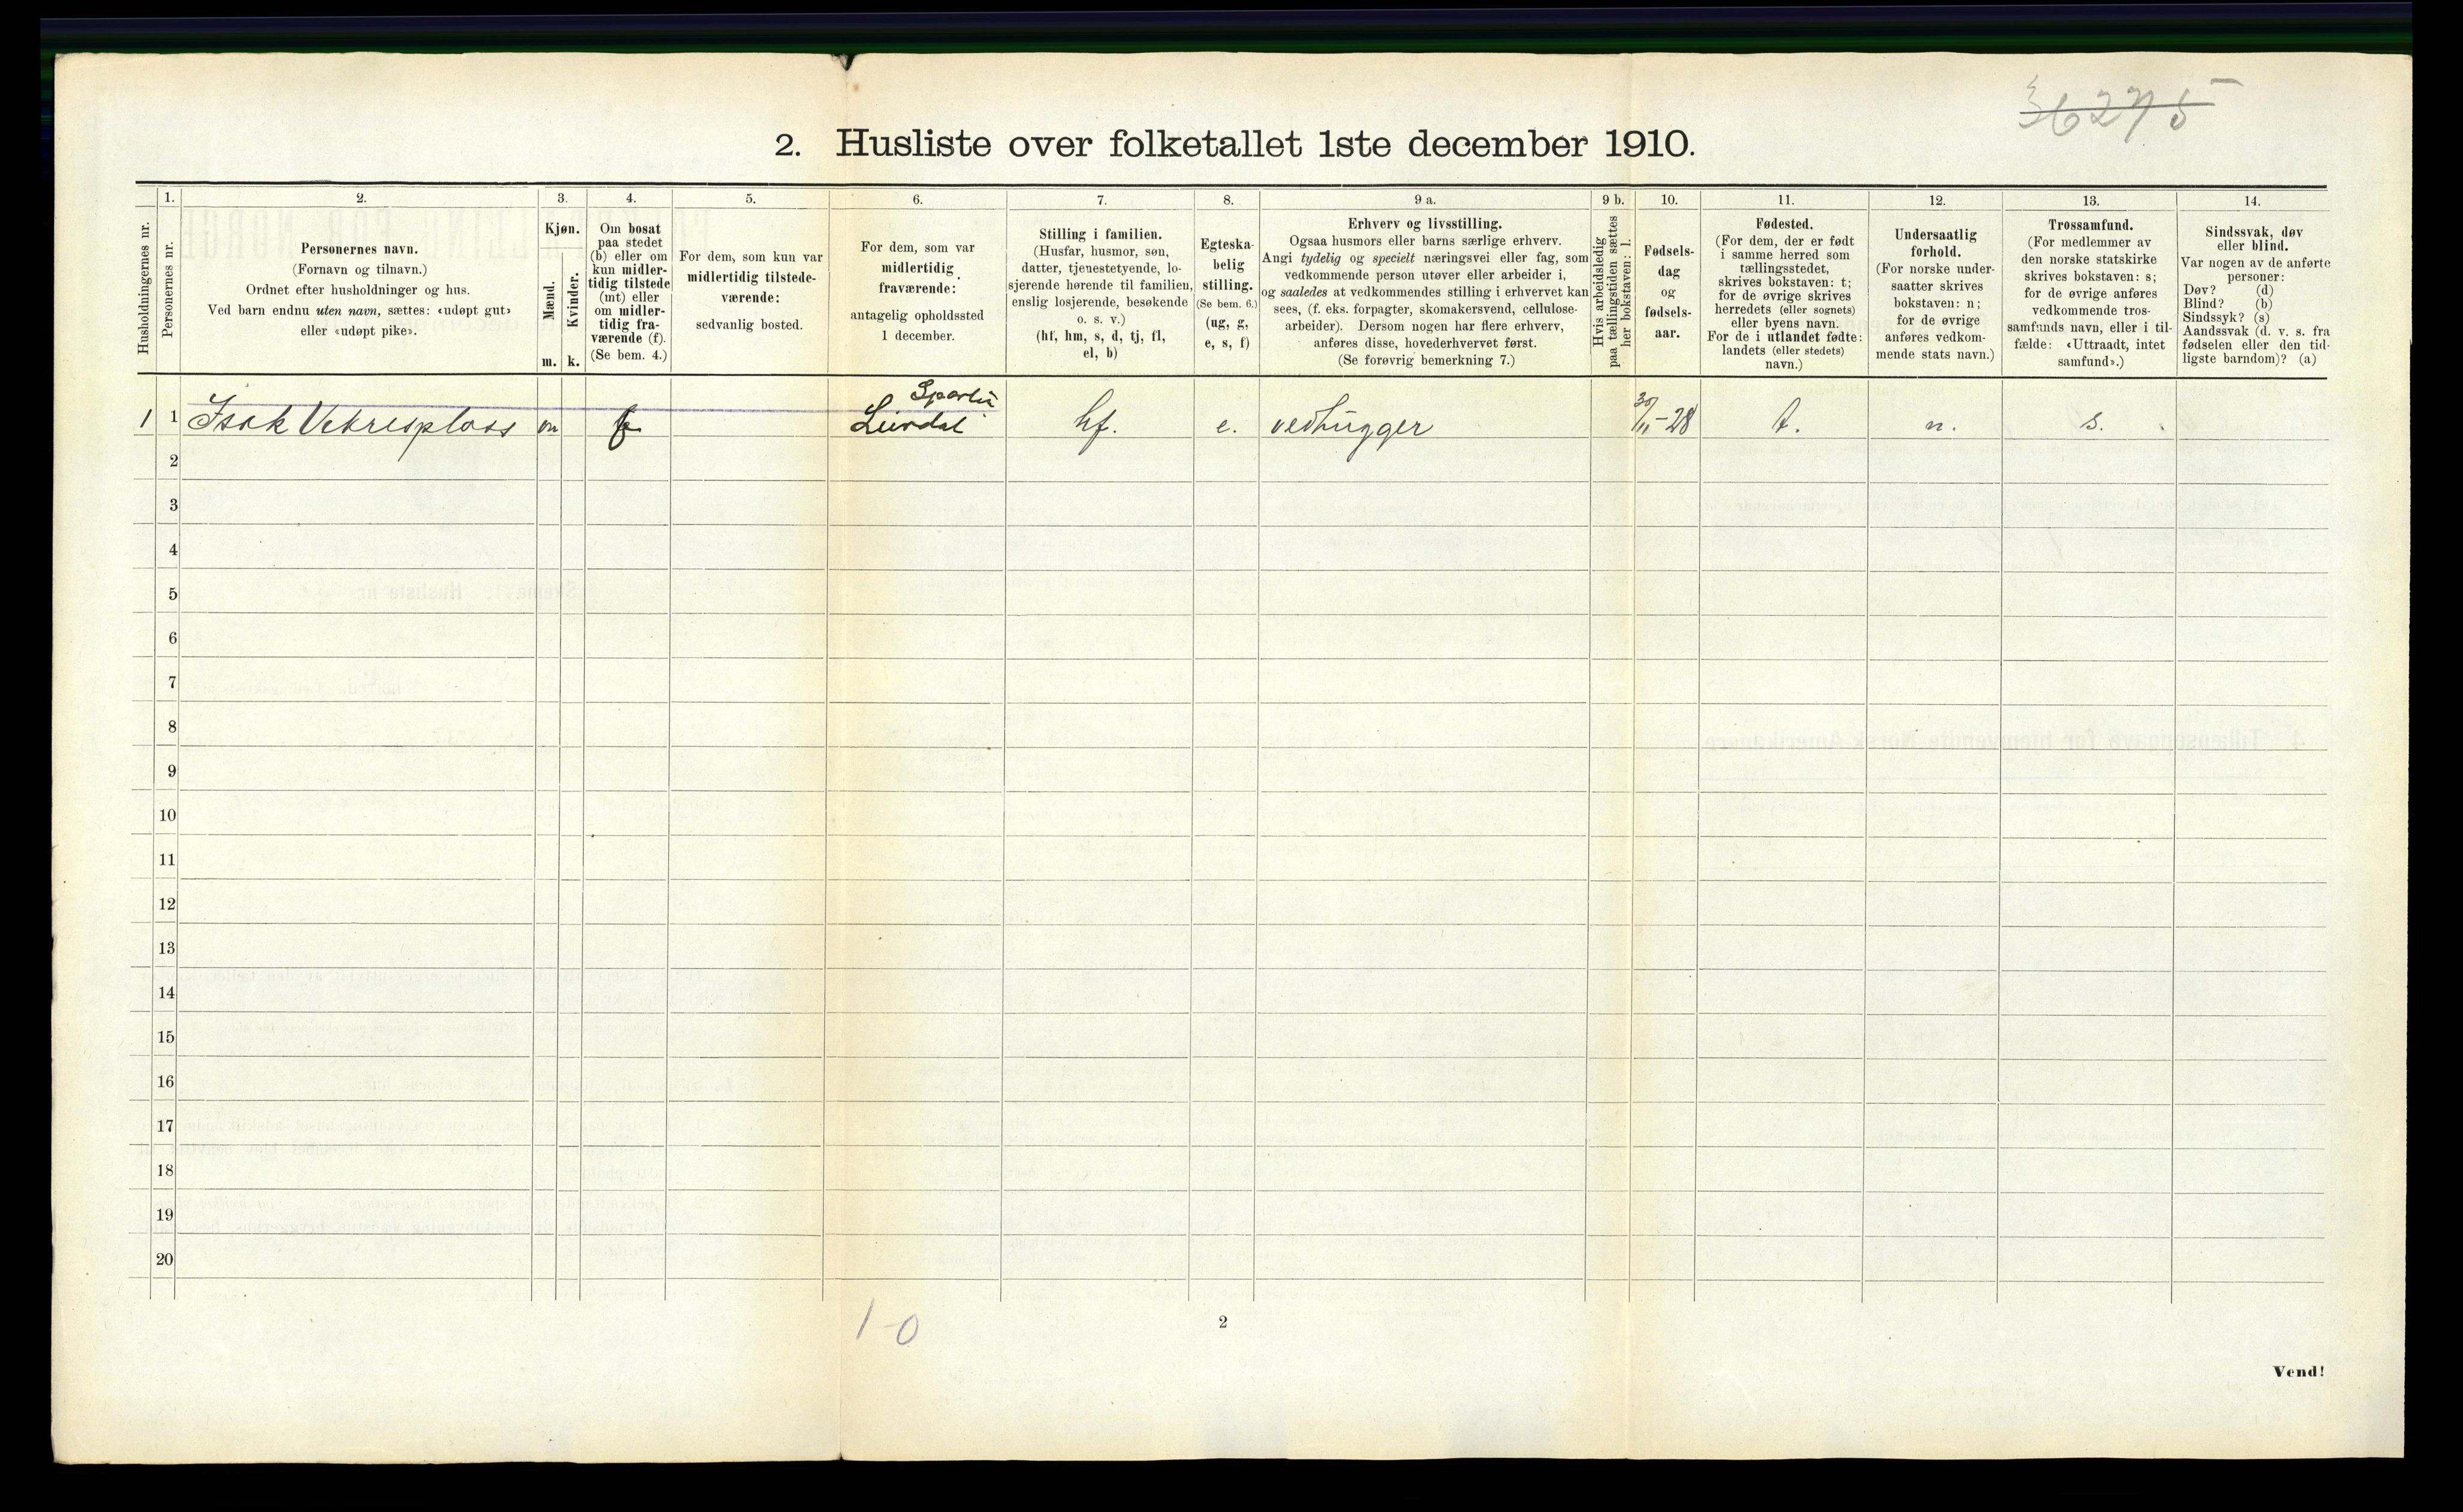 36275
2. Husliste over folketallet 1ste december 1910.
Husholdningernes nr.
1.
Personernes nr.
2.
Personernes navn.
(Fornavn og tilnavn.)
Ordnet efter husholdninger og hus.
Ved barn endnu uten navn, sættes: «udøpt gut»
eller «udøpt pike».
3.
Kjøn.
Mænd.
Kvinder.
m. k.
4.
Om bosat
paa stedet
(b) eller om
kun midler-
tidig tilstede
(mt) eller
om midler-
tidig fra-
værende (f).
(Se bem. 4.)
5.
For dem, som kun var
midlertidig tilstede-
værende:
sedvanlig bosted.
6.
For dem, som var
midlertidig
fraværende:
antagelig opholdssted
1 december.
7.
Stilling i familien.
(Husfar, husmor, søn,
datter, tjenestetyende, lo-
sjerende hørende til familien,
enslig losjerende, besøkende
o. s. v.)
(hf, hm, s, d, tj, fl,
el, b)
8.
Egteska-
belig
stilling.
(Se bem. 6.)
(ug, g,
e, s, f)
9 a.
Erhverv og livsstilling.
Ogsaa husmors eller barns særlige erhverv.
Angi tydelig og specielt næringsvei eller fag, som
vedkommende person utøver eller arbeider i,
og saaledes at vedkommendes stilling i erhvervet kan
sees, (f. eks. forpagter, skomakersvend, cellulose-
arbeider). Dersom nogen har flere erhverv,
anføres disse, hovederhvervet først.
(Se forøvrig bemerkning 7.)
9 b.
Hvis arbeidsledig
paa tællingstiden sættes
her bokstaven: l.
10.
Fødsels-
dag
og
fødsels-
aar.
11.
Fødested.
(For dem, der er født
i samme herred som
tællingsstedet,
skrives bokstaven: t;
for de øvrige skrives
herredets (eller sognets)
eller byens navn.
For de i utlandet fødte:
landets (eller stedets)
navn.)
12.
Undersaatlig
forhold.
(For norske under-
saatter skrives
bokstaven: n;
for de øvrige
anføres vedkom-
mende stats navn.)
13.
Trossamfund.
(For medlemmer av
den norske statskirke
skrives bokstaven: s;
for de øvrige anføres
vedkommende tros-
samfunds navn, eller i til-
fælde: «Uttraadt, intet
samfund».)
14.
Sindssvak, døv
eller blind.
Var nogen av de anførte
personer:
Døv? (d)
Blind? (b)
Sindssyk? (s)
Aandssvak (d. v. s. fra
fødselen eller den tid-
ligste barndom)? (a)
1 1 Isak Vetresplass m f Lundal hf. e. vedhugger 30/11-28 t. n. s.
2
3
4
5
6
7
8
9
10
11
12
13
14
15
16
17
18
19
20
1-0
2
Vend!